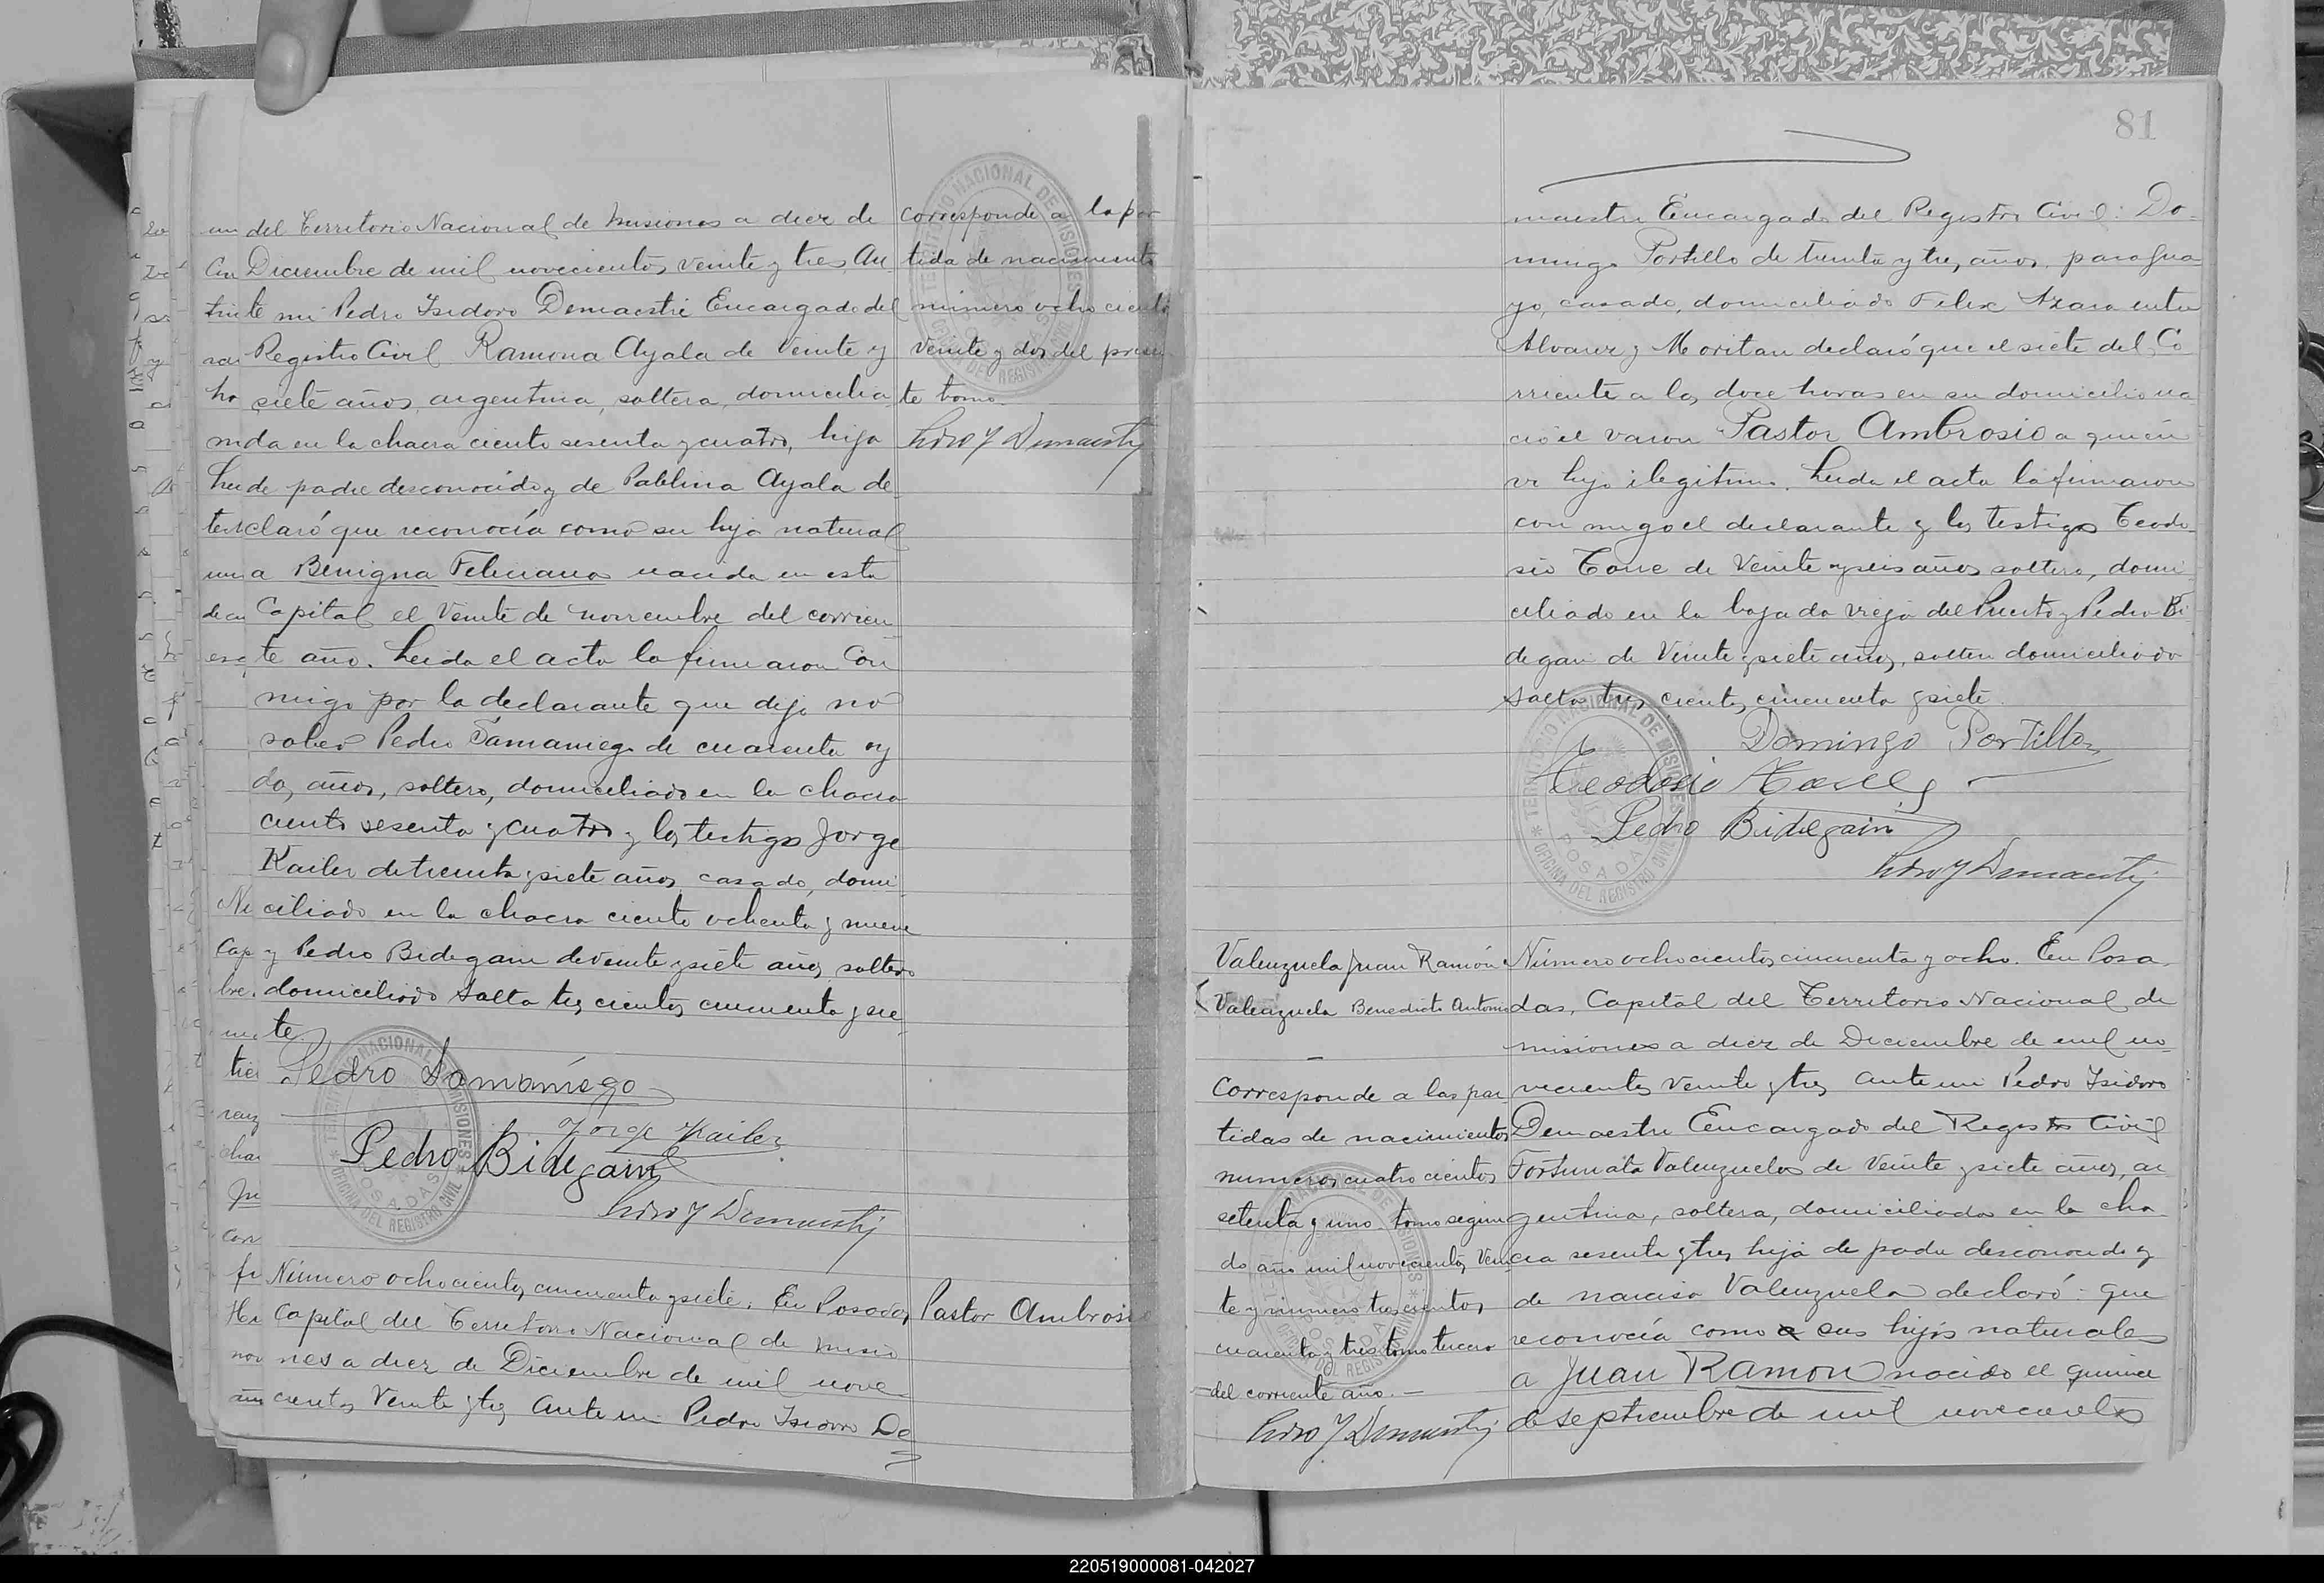 del Territorio Nacional de Misiones a diez de
Diciembre de mil novecientos veinte y tres, An
te mi Pedro Isidoro Demaestri Encargado del
Registro Civil Ramona Ayala de veinte y
siete años, argentina, soltera, domicilia
da en la chacra ciento sesenta y cuatro, hija
de padre desconocido y de Pablina Ayala de
claró que reconocía como su hija natural
a Benigna Feliciana nacida en esta
Capital el veinte de noviembre del corrien
te año. Leida el acta la firmaron con
migo por la declarante que dijo no
saber Pedro Samaniego de cuarenta y
dos años, soltero, domiciliado en la chacra
ciento sesenta y cuatro y los testigos Jorge
Kailer de treinta y siete años casado, domi
ciliado en la chacra ciento ochenta y nueve
y Pedro Bidegain de veinte y siete años soltero
domiciliado Salta tres cientos cincuenta y sie
te.
Pedro Samaniego
Jorge Kailer
Pedro Bidegain
Pedro I Demaestri
corresponde a la par
tida de nacimiento
número ocho ciento
veinte y dos del presen
te tomo.
Pedro I Demaestri
TERRITORIO NACIONAL DE MISIONES
OFICINA DEL REGISTRO CIVIL
POSADAS
Número ochocientos cincuenta y siete. En Posadas
Capital del Territorio Nacional de Misio
nes a diez de Diciembre de mil nove
cientos veinte y tres ante mi Pedro Isidoro De
Pastor Ambrosio
81
maestri Encargado del Registro Civil: Do
mingo Portillo de treinta y tres años, paragua
yo, casado, domiciliado Felix Azara entre
Alvarez y Moritan declaró que el siete del co
rriente a las doce horas en su domicilio na
ció el varon Pastor Ambrosio a quien
vi hijo ilegitimo. Leida el acta la firmaron
con migo el declarante y los testigos Teodo
sio Torre de veinte y seis años soltero, domi
ciliado en la bajada vieja del Puerto y Pedro Bi
degain de veinte y siete años, soltero domiciliado
Salta tres cientos cincuenta y siete.
Domingo Portillo
Teodosio Torres
Pedro Bidegain
Pedro I Demaestri
TERRITORIO NACIONAL DE MISIONES
OFICINA DEL REGISTRO CIVIL
POSADAS
Valenzuela Juan Ramón
Valenzuela Benedicto Antonio
Corresponde a las par
tidas de nacimientos
numeros cuatro cientos
setenta y uno tomo segun
do año mil novecientos vein
te y numero trescientos
cuarenta y tres tomo tercero
del corriente año.
Pedro I Demaestri
Número ochocientos cincuenta y ocho. En Posa
das, Capital del Territorio Nacional de
Misiones a diez de Diciembre de mil no
vecientos veinte y tres ante mi Pedro Isidoro
Demaestri Encargado del Registro Civil
Fortunata Valenzuela de veinte y siete años, ar
gentina, soltera, domiciliada en la cha
cra sesenta y tres hija de padre desconocido y
de narcisa Valenzuela declaró: que
reconocía como a sus hijos naturales
a Juan Ramon nacido el quince
de septiembre de mil novecientos
220519000081-042027